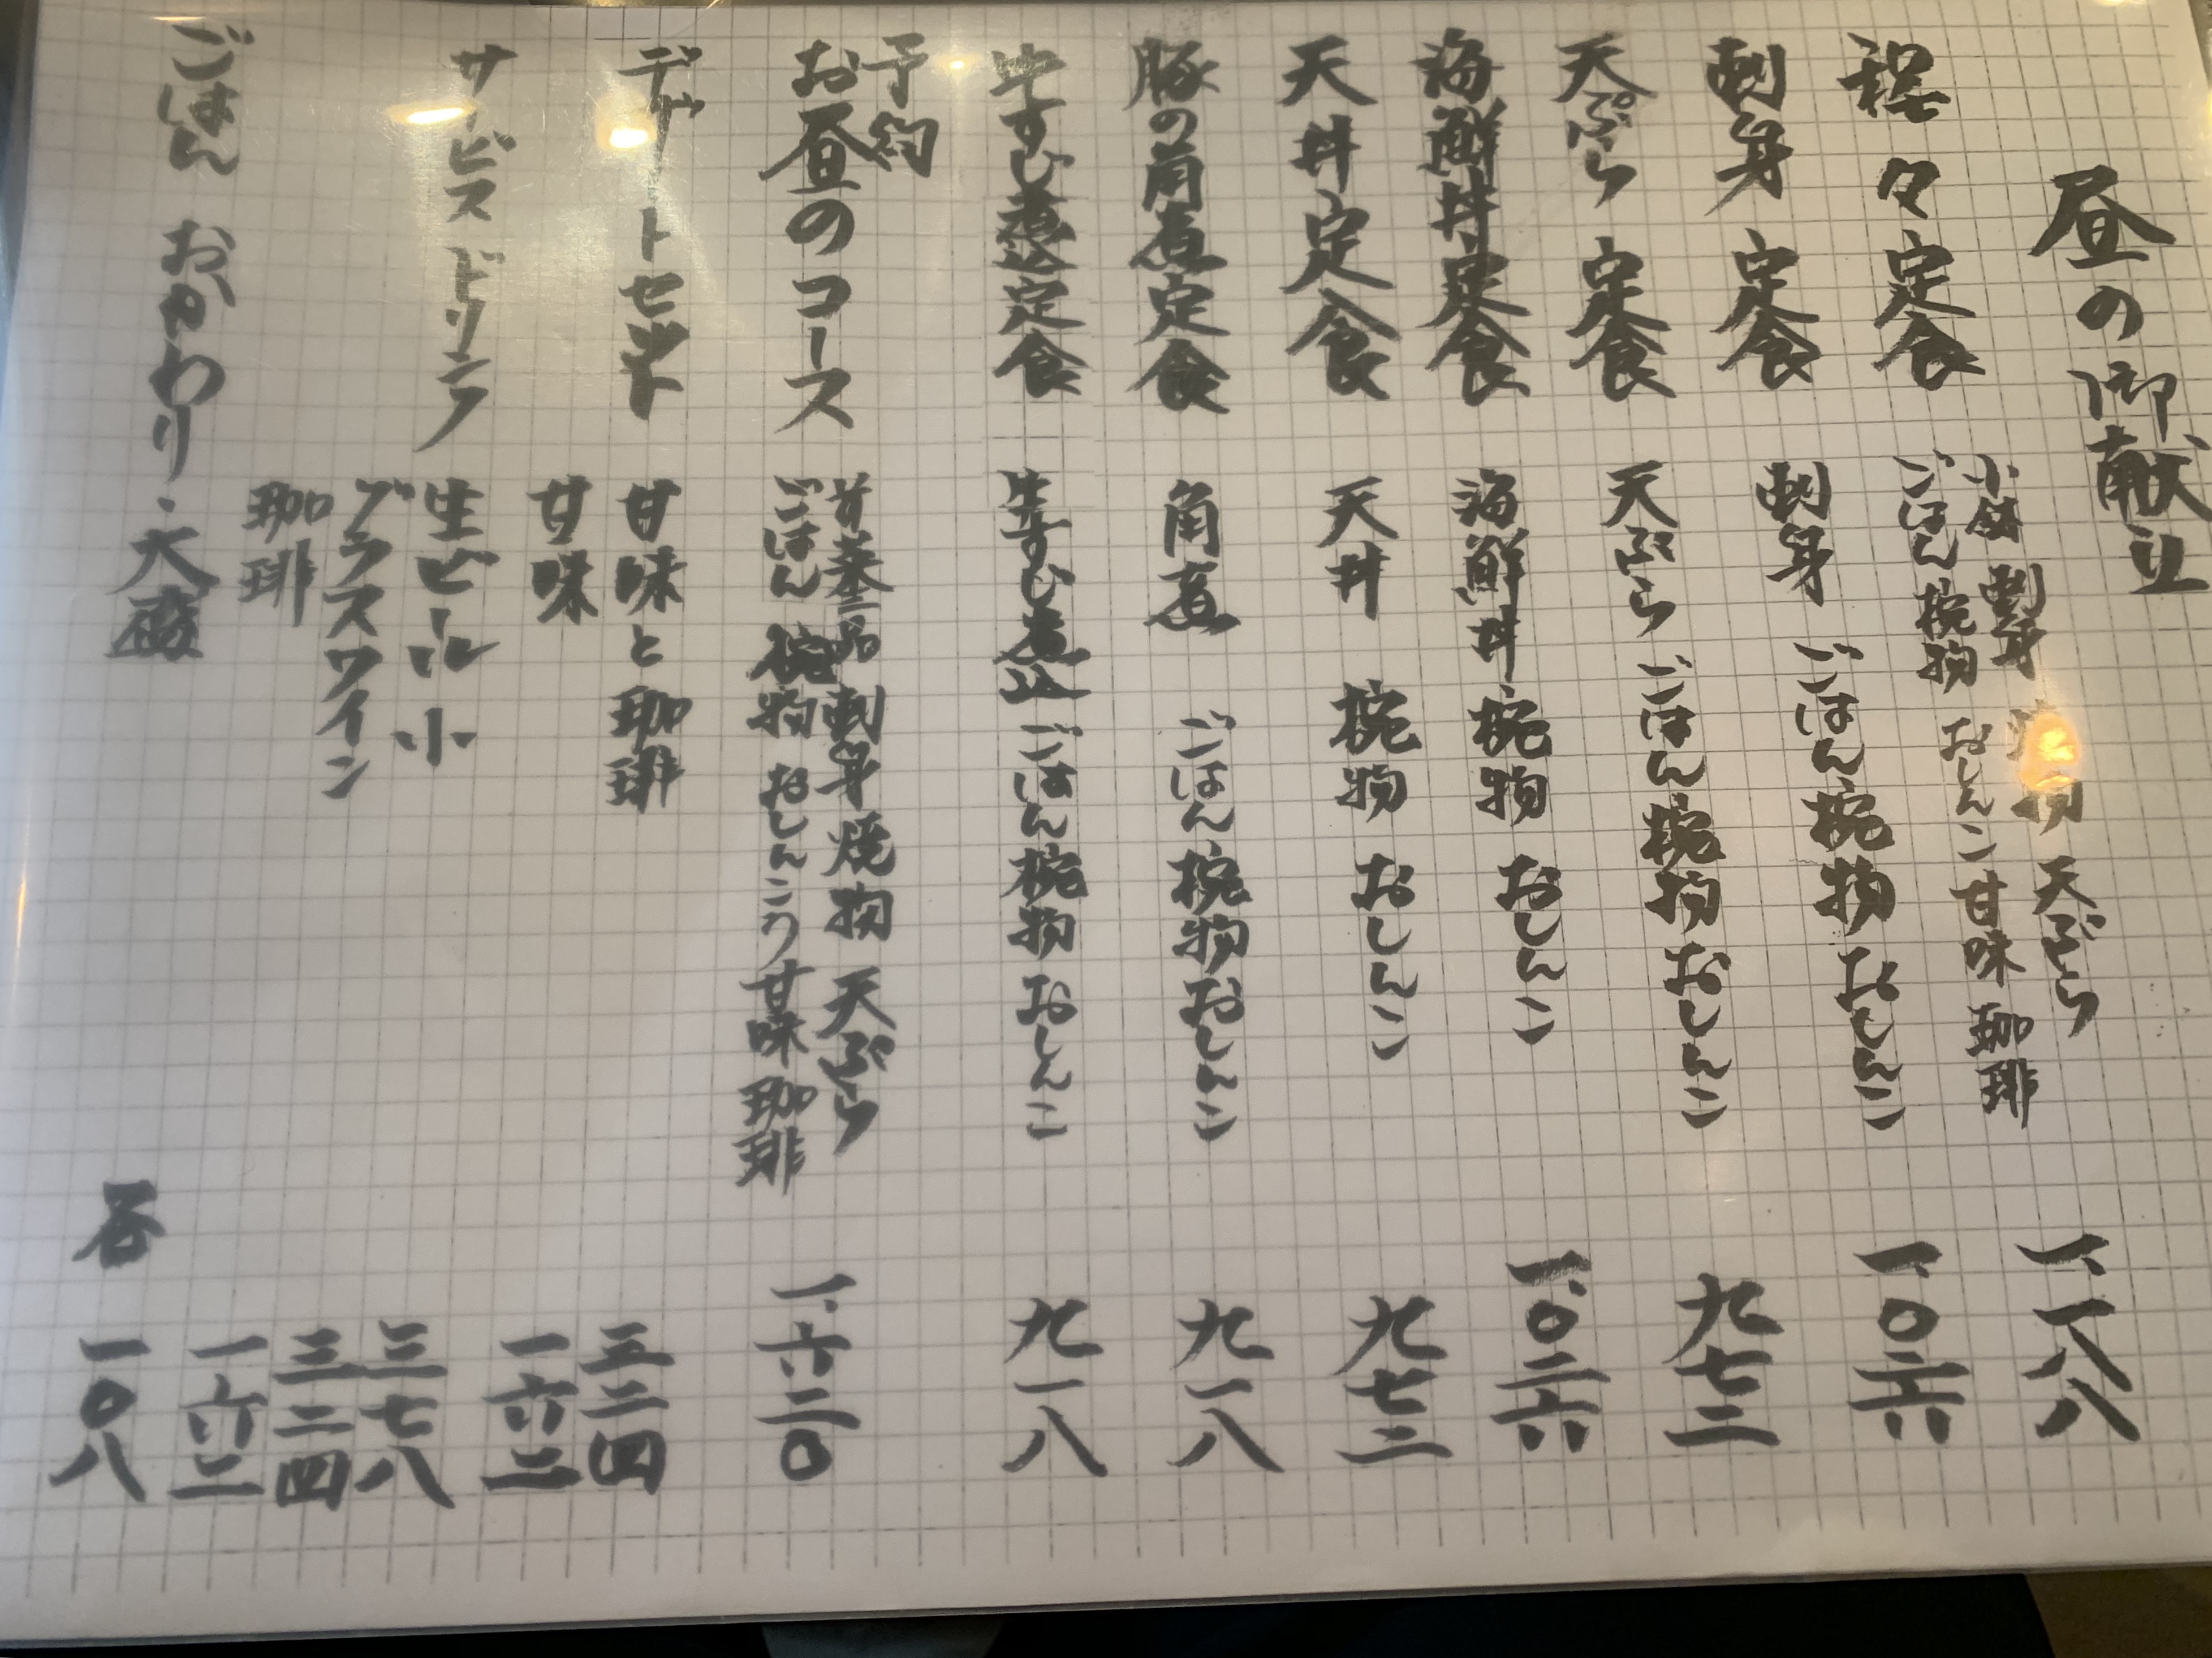 昼の御献立
程々定食
小鉢 刺身 焼物 天ぷら
ごはん 椀物 おしんこ 甘味 珈琲
一、一八八
刺身定食
刺身 ごはん 椀物 おしんこ
一、〇二六
天ぷら定食
天ぷら ごはん 椀物 おしんこ
九七二
海鮮丼定食
海鮮丼 椀物 おしんこ
一、〇二六
天丼定食
天丼 椀物 おしんこ
九七二
豚の角煮定食
角煮 ごはん 椀物 おしんこ
九一八
牛すじ煮込定食
牛すじ煮込 ごはん 椀物 おしんこ
九一八
予約
お昼のコース
前菜三品 刺身 焼物 天ぷら
ごはん 椀物 おしんこう 甘味 珈琲
一、六二〇
デザートセット
甘味と珈琲
三二四
甘味
一六二
サービスドリンク
生ビール 小
三七八
グラスワイン
三二四
珈琲
一六二
ごはん おかわり・大盛
各 一〇八